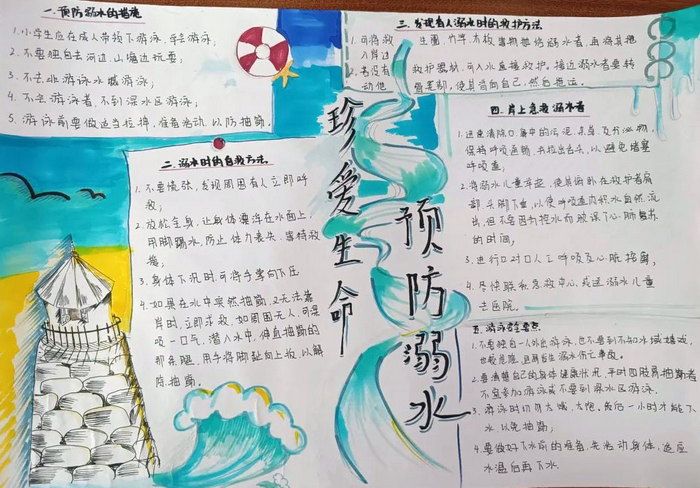 一.预防溺水的措施
1.小学生应在成人带领下游泳,学会游泳;
2.不要独自去河边、山塘边玩耍;
3.不去水游泳水域游泳;
4.不会游泳者,不到深水区游泳;
5.游泳前要做适当拉操,准备活动,以防抽筋。
二.溺水时的自救方法
1.不要慌张,发现周围有人立即呼
救;
2.放松全身,让身体漂浮在水面上,
用脚踢水,防止体力丧失,等待救
援;
3.身体下沉时,可将手掌向下压
4.如果在水中突然抽筋,又无法靠
岸时,立即求救,如周围无人,可深
吸一口气,潜入水中,伸直抽筋的
那条腿,用手将脚趾向上扳,以解
除抽筋。
珍爱生命
预防溺水
三.发现有人溺水时的救护方法
1.可将救生圈、竹竿、木板等物抛给溺水者,再将其拖
入岸边
2.若没有救护器材,可入水直接救护。接近溺水者要转
动他髋部,使其背向自己,然后拖运。
四.岸上急救溺水者
1.迅速清除口鼻中的污泥、杂草及分泌物,
保持呼吸通畅,并拉出舌头,以避免堵塞
呼吸道;
2.将溺水儿童举起,使其俯卧在救护者肩
部,头脚下垂,以使呼吸道内积水自然流
出,但不要因为控水而耽误了心肺复苏
的时间;
3.进行口对口人工呼吸及心脏按摩,
4.尽快联系急救中心或送溺水儿童
去医院。
五.游泳注意要点
1.不要独自一人外出游泳,也不要到不知水域游戏,
也较危险,且易发生溺水伤亡事故。
2.要清楚自己的身体健康状况,平时四肢易抽筋者
不宜参加游泳或不要到深水区游泳。
3.游泳时切勿太饿、太饱。饭后一小时才能下
水,以免抽筋;
4.要做好下水前的准备,先活动身体,适应
水温后再下水.